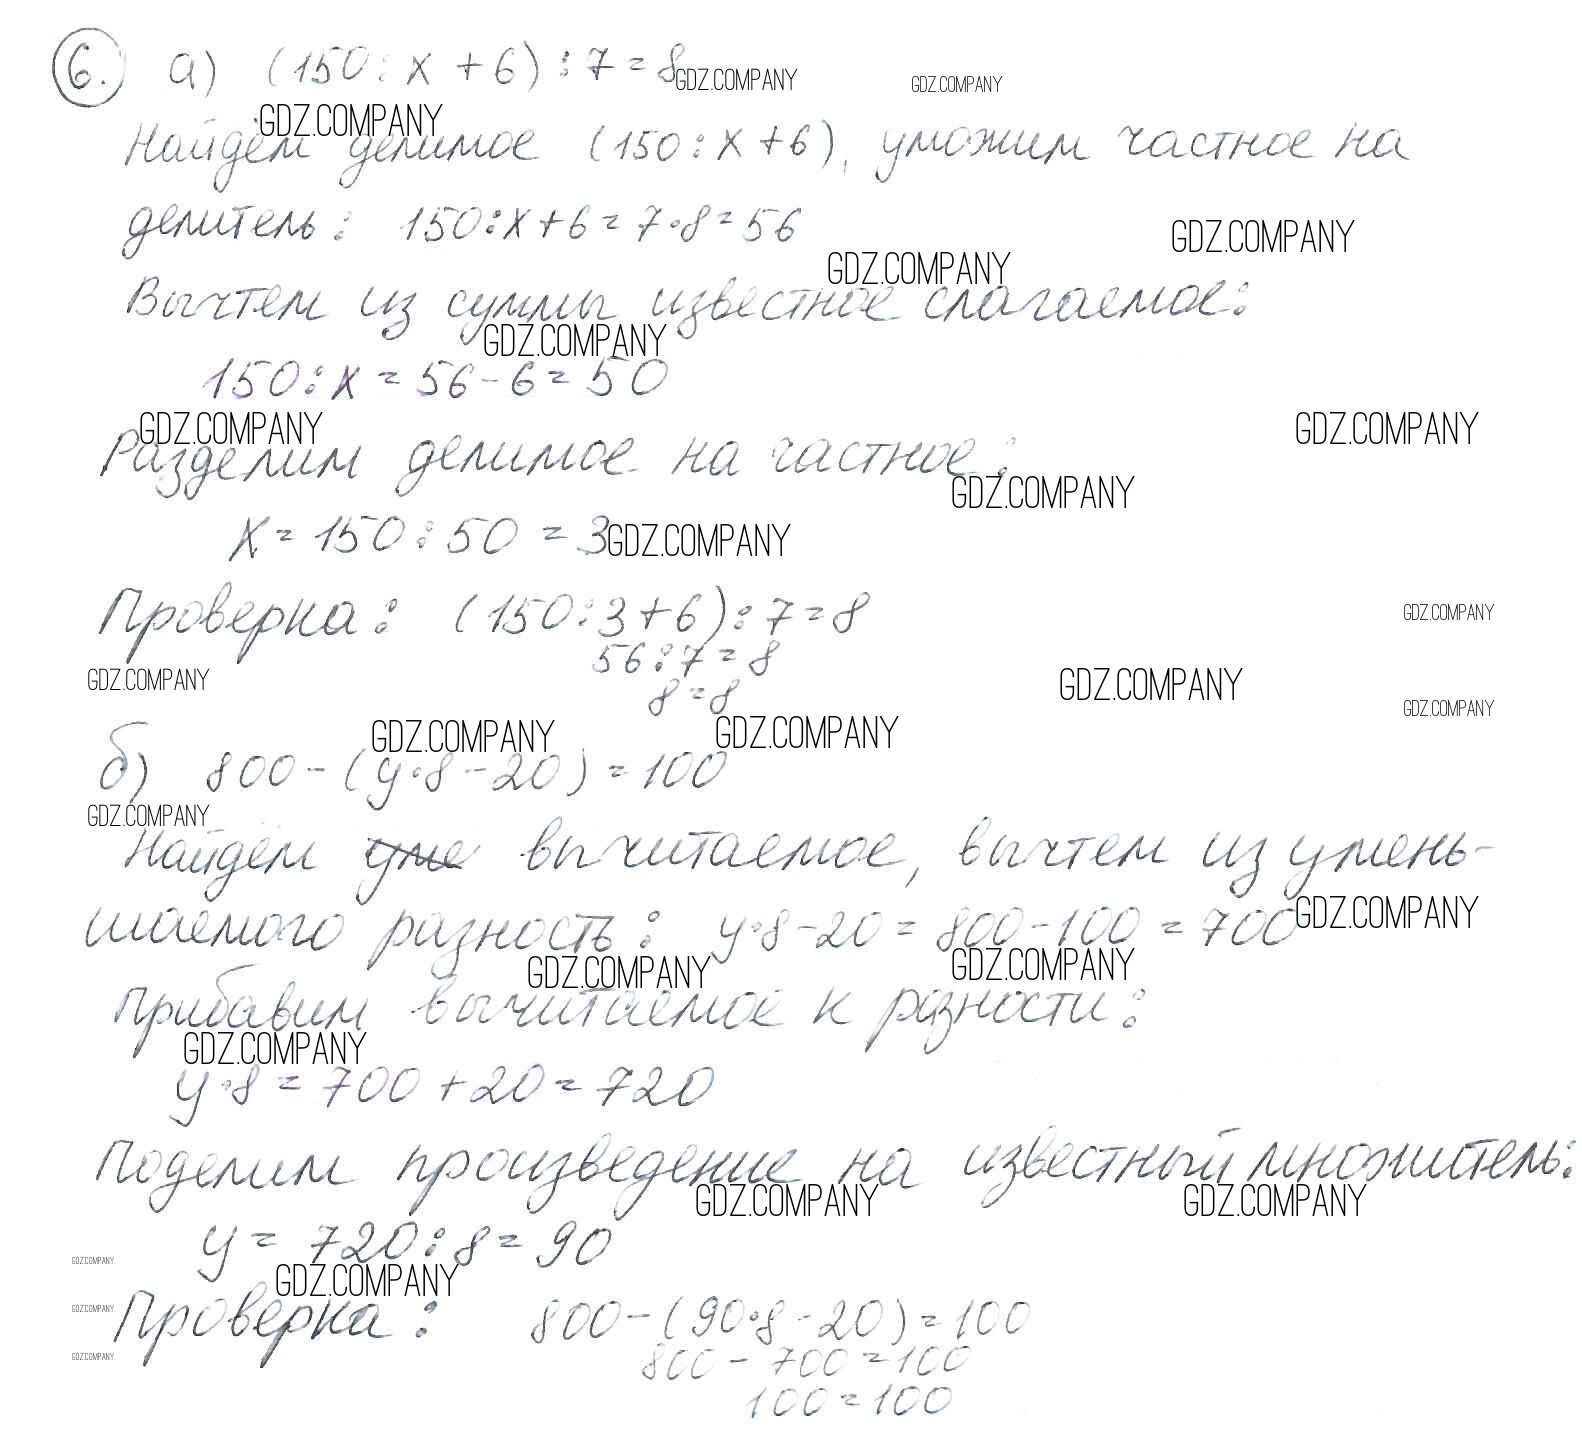 6. а) (150 : x + 6) : 7 = 8 GDZ.COMPANY GDZ.COMPANY
GDZ.COMPANY
Найдём делимое (150 : x + 6), умножим частное на
делитель: 150 : x + 6 = 7 · 8 = 56 GDZ.COMPANY
GDZ.COMPANY
Вычтем из суммы известное слагаемое:
GDZ.COMPANY
150 : x = 56 - 6 = 50
GDZ.COMPANY GDZ.COMPANY
Разделим делимое на частное:
GDZ.COMPANY
x = 150 : 50 = 3 GDZ.COMPANY
Проверка: (150 : 3 + 6) : 7 = 8 GDZ.COMPANY
56 : 7 = 8
GDZ.COMPANY GDZ.COMPANY
8 = 8 GDZ.COMPANY
GDZ.COMPANY GDZ.COMPANY
б) 800 - (y · 8 - 20) = 100
GDZ.COMPANY
Найдём уме вычитаемое, вычтем из умень-
шаемого разность: y · 8 - 20 = 800 - 100 = 700 GDZ.COMPANY
GDZ.COMPANY GDZ.COMPANY
Прибавим вычитаемое к разности:
GDZ.COMPANY
y · 8 = 700 + 20 = 720
Поделим произведение на известный множитель:
GDZ.COMPANY GDZ.COMPANY
y = 720 : 8 = 90
GDZ.COMPANY GDZ.COMPANY
GDZ.COMPANY
Проверка: 800 - (90 · 8 - 20) = 100
GDZ.COMPANY 800 - 700 = 100
100 = 100